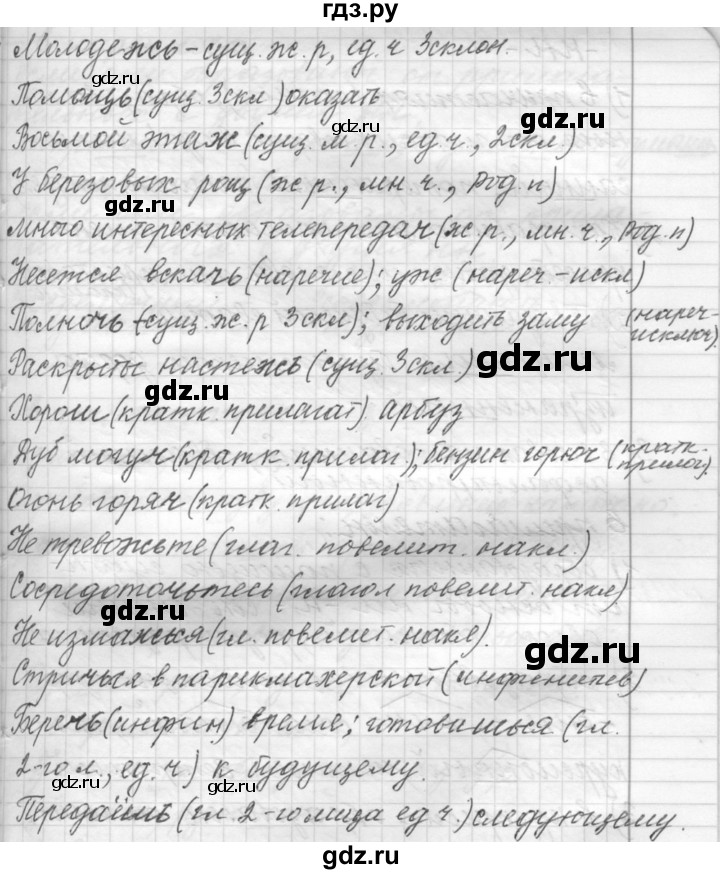 гдз.ру
Молодежь - сущ. ж. р, ед. ч 3склон.
Помощь (сущ. 3скл) оказать
gdz.ru
Восьмой этаж (сущ. м. р., ед. ч., 2скл)
У березовых рощ (ж р., мн. ч., Род. п)
gdz.ru
Много интересных телепередач (ж. р., мн. ч., Род. п)
Несется вскачь (наречие); уж (нареч. - искл)
Полночь (сущ. ж. р 3скл); выходить заму (нареч - исключ).
gdz.ru
Раскрыты настежь (сущ. 3скл.)
gdz.ru
gdz.ru
Хорош (кратк. прилагат) арбуз
Дуб могуч (кратк. прилаг); бензин горюч (кратк. прилаг).
Огонь горяч (кратк. прилаг)
gdz.ru
Не тревожьте (глаг. повелит. накл.)
Сосредоточьтесь (глагол повелит. накл)
gdz.ru
Не измажься (гл. повелит. накл).
gdz.ru
Стричься в парикмахерской (инфинитив)
Беречь (инфин) время; готовишься (гл.
gdz.ru
2-го л., ед. ч) к будущему.
gdz.ru
Передаёшь (гл. 2-го лица ед ч.) следующему.
gdz.ru
gdz.ru